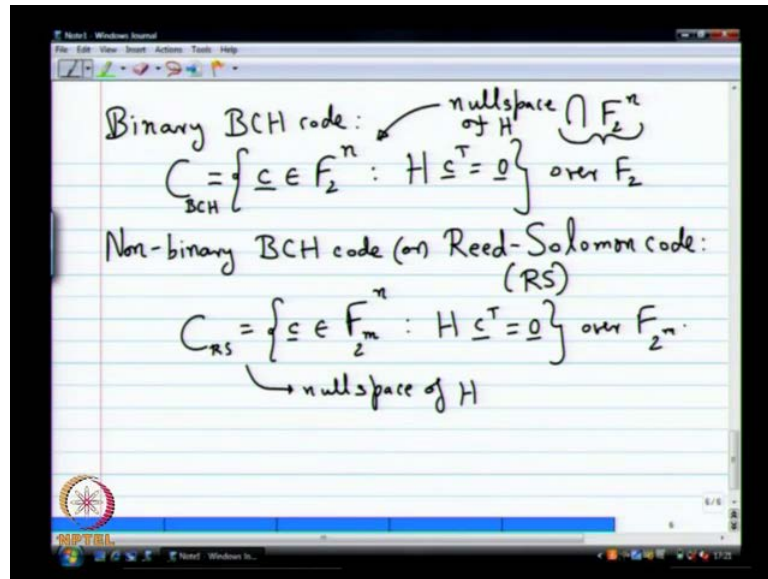 Note1 - Windows Journal
File Edit View Insert Actions Tools Help
Binary BCH code: nullspace of H ∩ F₂ⁿ
C_BCH = { c ∈ F₂ⁿ : H cᵀ = 0 } over F₂
Non-binary BCH code (or) Reed-Solomon code:
(RS)
C_RS = { c ∈ F_{2^m}^n : H cᵀ = 0 } over F_{2^m}.
nullspace of H
6/6
6
NPTEL
Note1 - Windows Jo...
17:21